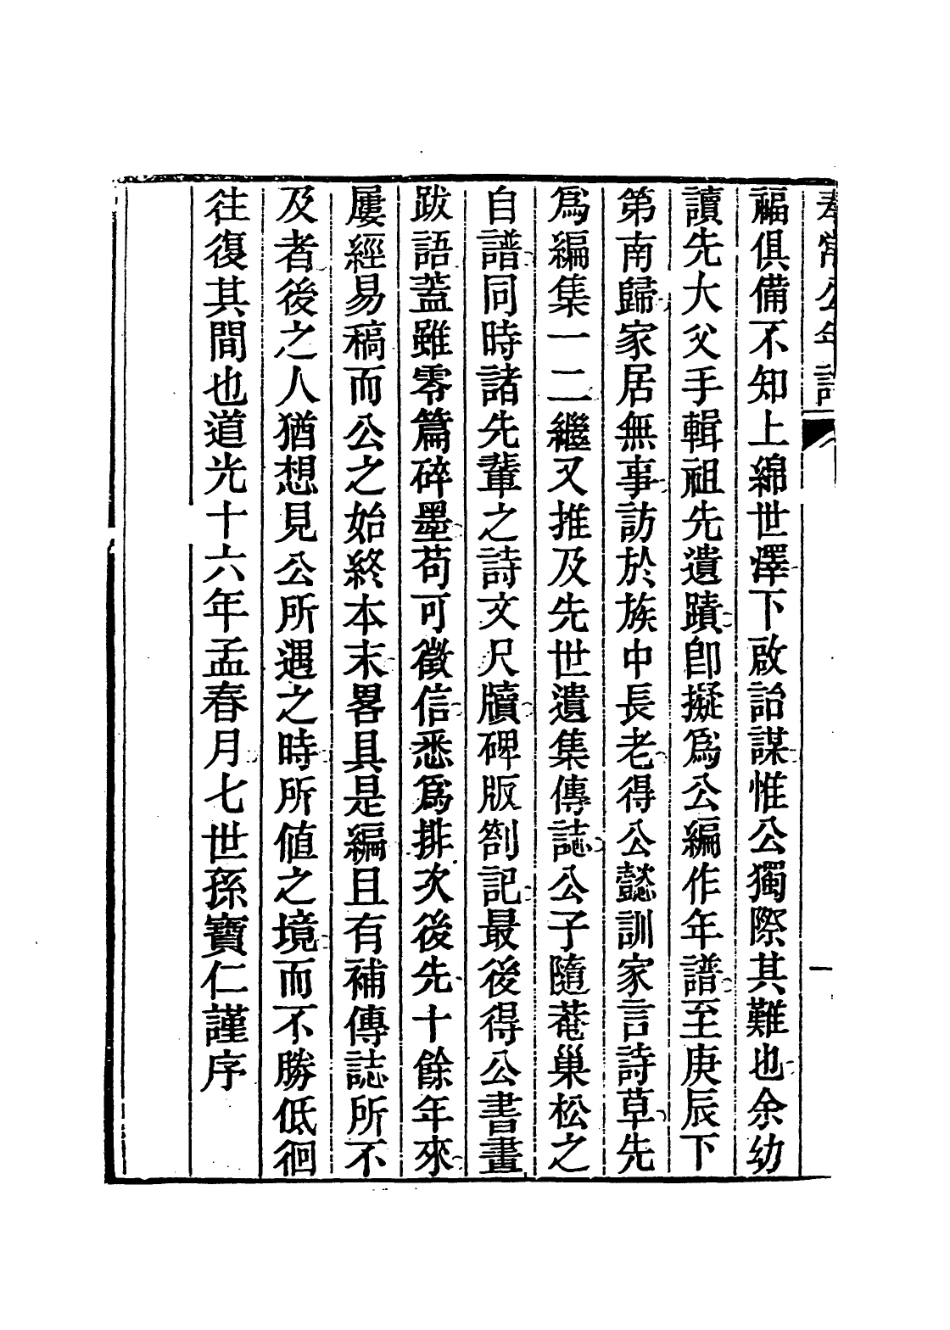 奉常公年譜
一
福俱備不知上綿世澤下啟詒謀惟公獨際其難也余幼
讀先大父手輯祖先遺蹟卽擬爲公編作年譜至庚辰下
第南歸家居無事訪於族中長老得公懿訓家言詩草先
爲編集一二繼又推及先世遺集傳誌公子隨菴巢松之
自譜同時諸先輩之詩文尺牘碑版劄記最後得公書畫
跋語蓋雖零篇碎墨苟可徵信悉爲排次後先十餘年來
屢經易稿而公之始終本末畧具是編且有補傳誌所不
及者後之人猶想見公所遇之時所値之境而不勝低徊
往復其間也道光十六年孟春月七世孫寶仁謹序